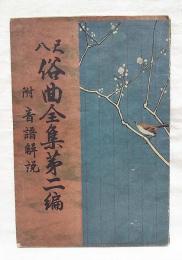 尺八
俗曲全集第二編
附音譜解説